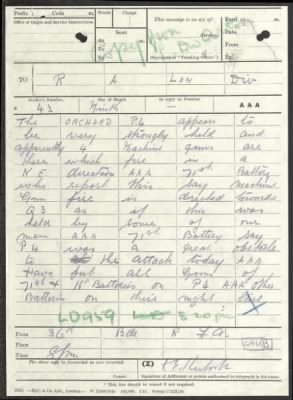 Prefix Code m. Words Charge
Office of Origin and Service Instructions.
Sent
This message is on a/c of:
TO R A Lon Div
Sender's Number. Day of Month In reply to Number AAA
43 Ninth
The ORCHARD P4 appears to
be very strongly held and
apparently 4 Machine guns are
there which fire in a
N E direction AAA 71st Battery
who report this say Machine
Gun fire is directed towards
Q3 as if this was
held by some of our
men AAA 71st Battery say
P4 was a great obstacle
to the attack today AAA
Have put all Guns of
71st & 16th Batteries on P4 AAA other
Batteries on this night
LD959 8 20 pm
From 36th Bde R F A
Place
Time 8 pm
The above may be forwarded as now corrected. (Z)
Censor. Signature of Addressor or person authorised to telegraph in his name.
* This line should be erased if not required.